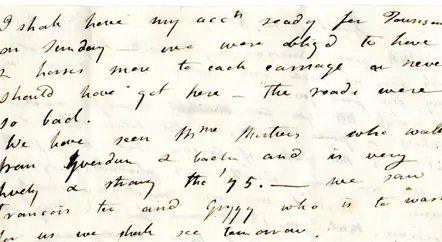 I shall have my acc.ts ready for
on Sunday — we were oblig'd to have
2 horses more to each carriage or never
should have got here — the roads were
so bad.
We have seen Mme — who
from Yverdun & back and is very
lively & strong tho' 75. — we saw
Francois too and who is to wash
for us we shall see tomorrow